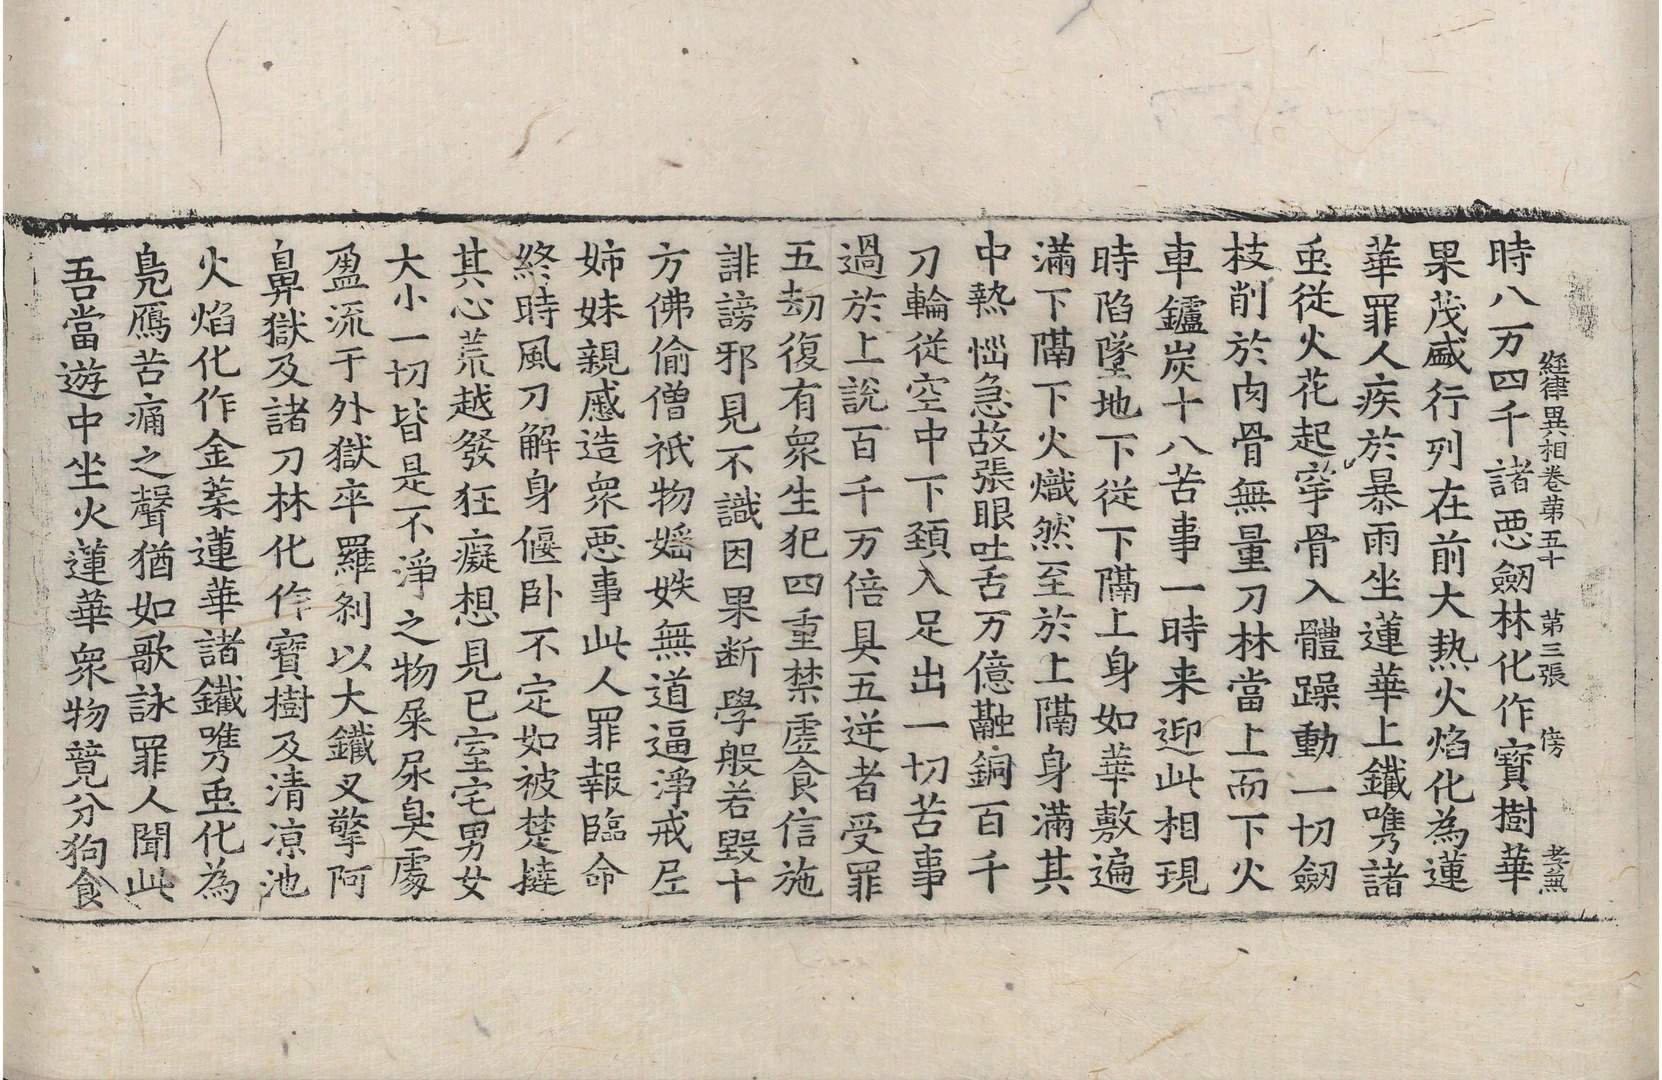 經律異相卷第五十 第三張 傍 孝兼
時八万四千諸惡劒林化作寶樹華
果茂盛行列在前大熱火焰化為蓮
華罪人疾於暴雨坐蓮華上鐵嘴諸
䖝従火花起穿骨入體躁動一切劒
枝削於肉骨無量刀林當上而下火
車鑪炭十八苦事一時来迎此相現
時陷墜地下従下隔上身如華敷遍
滿下隔下火熾然至於上隔身滿其
中熱惱急故張眼吐舌万億融銅百千
刀輪従空中下頚入足出一切苦事
過於上說百千万倍具五逆者受罪
五劫復有衆生犯四重禁虛食信施
誹謗邪見不識因果断學般若毀十
方佛偷僧祇物婬妷無道逼淨戒尼
姉妹親慼造衆惡事此人罪報臨命
終時風刀解身偃卧不定如被楚撻
其心荒越發狂癡想見已室宅男女
大小一切皆是不淨之物屎尿臭處
盈流于外獄卒羅刹以大鐵叉擎阿
鼻獄及諸刀林化作寶樹及清凉池
火焰化作金葉蓮華諸鐵嘴䖝化為
鳬鴈苦痛之聲猶如歌詠罪人聞此
吾當遊中坐火蓮華衆物竟分狗食